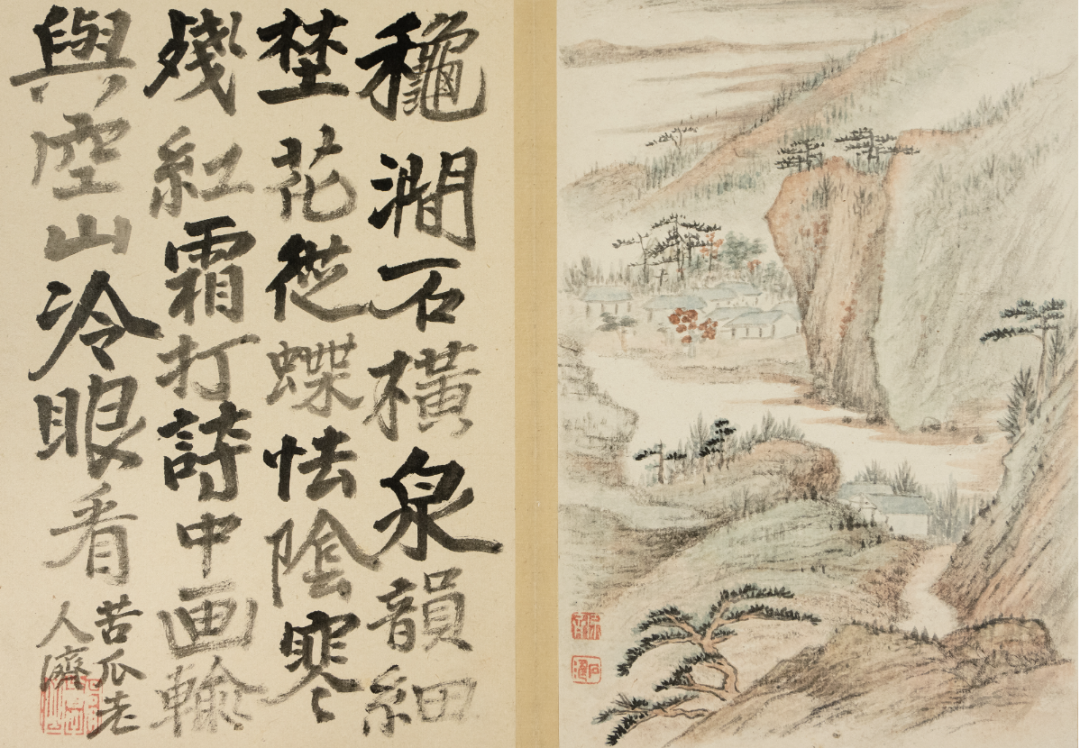 穐澗石橫泉韻細
埜花從蝶怯陰寒
殘紅霜打詩中画輸
與空山冷眼看
苦瓜老
人濟